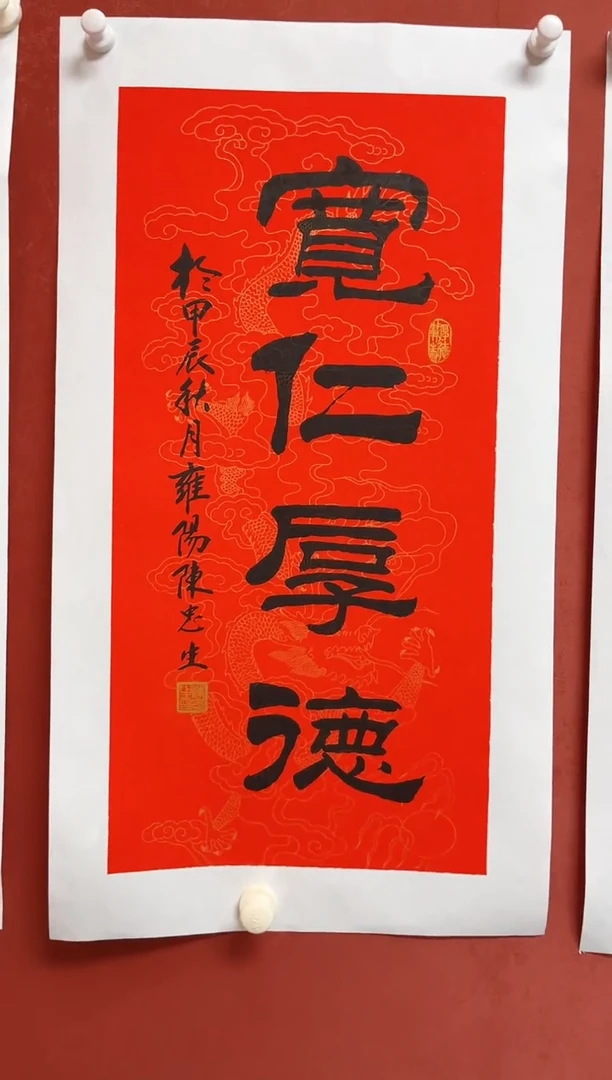 寬仁厚德
於甲辰秋月雍陽陳忠生